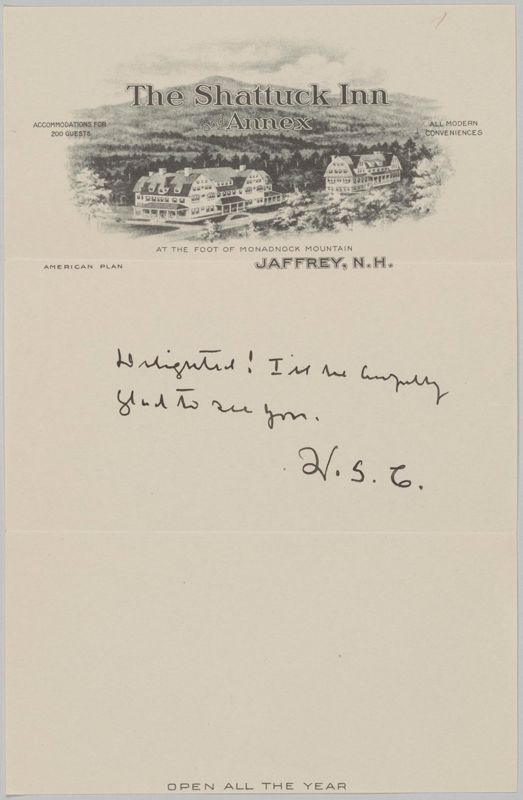 The Shattuck Inn
and Annex
ACCOMMODATIONS FOR
200 GUESTS
ALL MODERN
CONVENIENCES
AT THE FOOT OF MONADNOCK MOUNTAIN
AMERICAN PLAN
JAFFREY, N.H.
Delighted! I'll be awfully
glad to see you.
W. S. C.
OPEN ALL THE YEAR